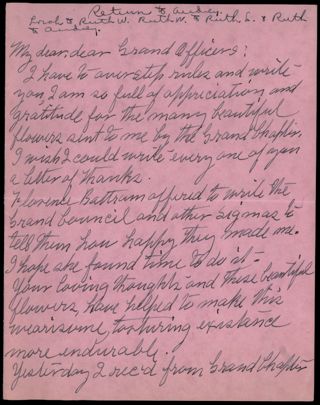 Return to Audrey.
Leah to Ruth W. Ruth M. to Ruth S. & Ruth
to Audrey.
My dear, dear Grand Officers:
I have to overstep rules and write
you, I am so full of appreciation and
gratitude for the many beautiful
flowers sent to me by the Grand Chapter.
I wish I could write every one of you
a letter of thanks.
Florence Bottram offered to write the
Grand Council and other Sigmas to
tell them how happy they made me.
I hope she found time to do it -
Your loving thoughts and these beautiful
flowers, have helped to make this
wearisome, torturing existance
more endurable.
Yesterday I rec'd from Grand Chapter